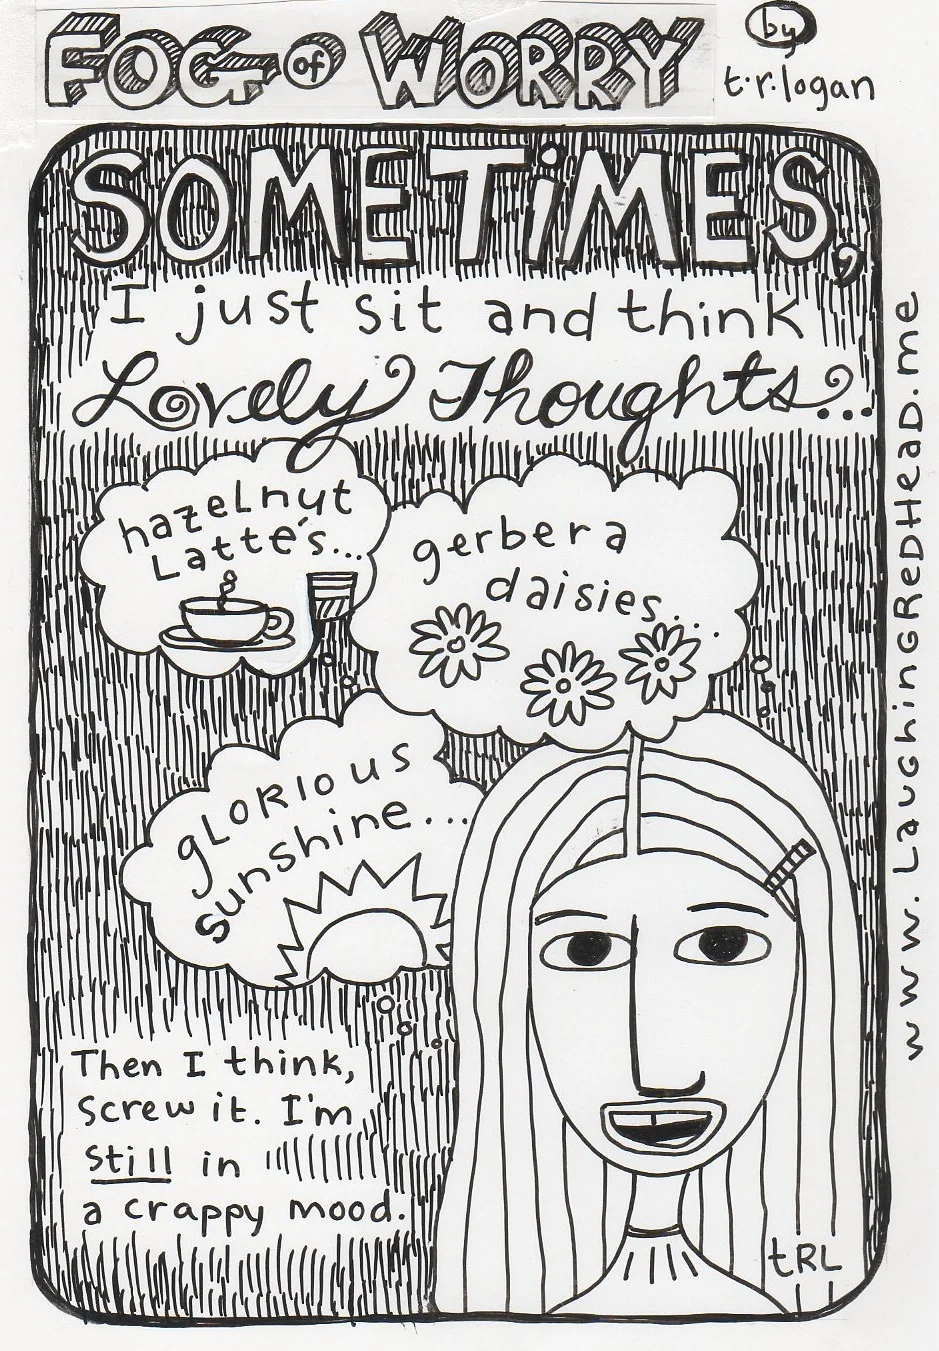 FOG of WORRY
by
t.r.logan
SOMETiMES,
I just sit and think
Lovely Thoughts...
hazelnut
Latté's...
gerbera
daisies...
gLORIOUS
sunshine...
Then I think,
screw it. I'm
still in
a crappy mood.
tRL
www.LaughingReDHeaD.me